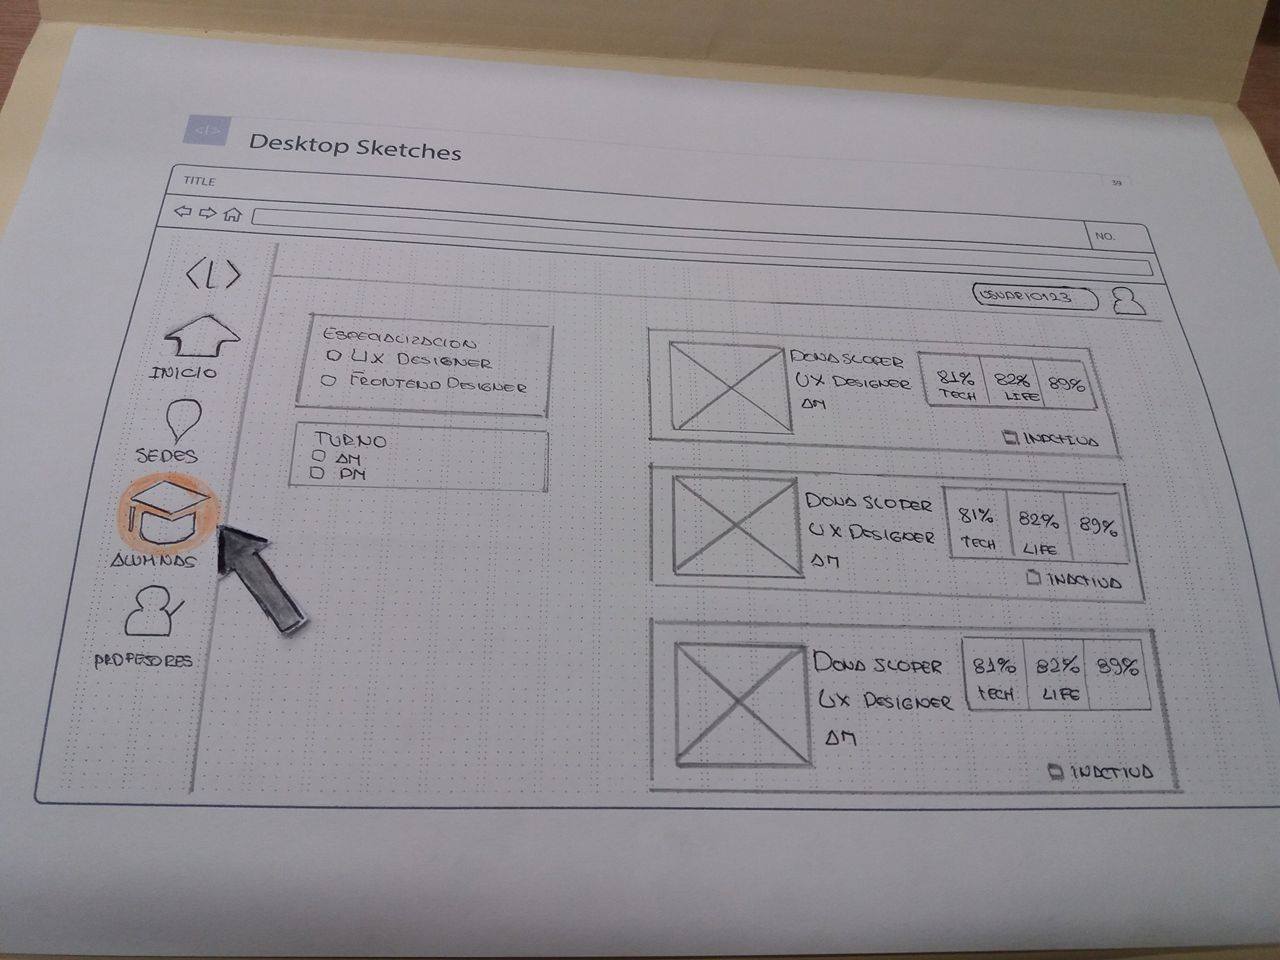 <L>
Desktop Sketches
39
TITLE
NO.
<|>
USUARIO123
INICIO
SEDES
ALUMNAS
PROFESORES
ESPECIALIZACION
UX DESIGNER
FRONTEND DESIGNER
TURNO
AM
PM
DONA SLOPER
UX DESIGNER
AM
81% TECH
82% LIFE
89%
INACTIVA
DONA SLOPER
UX DESIGNER
AM
81% TECH
82% LIFE
89%
INACTIVA
DONA SLOPER
UX DESIGNER
AM
81% TECH
82% LIFE
89%
INACTIVA